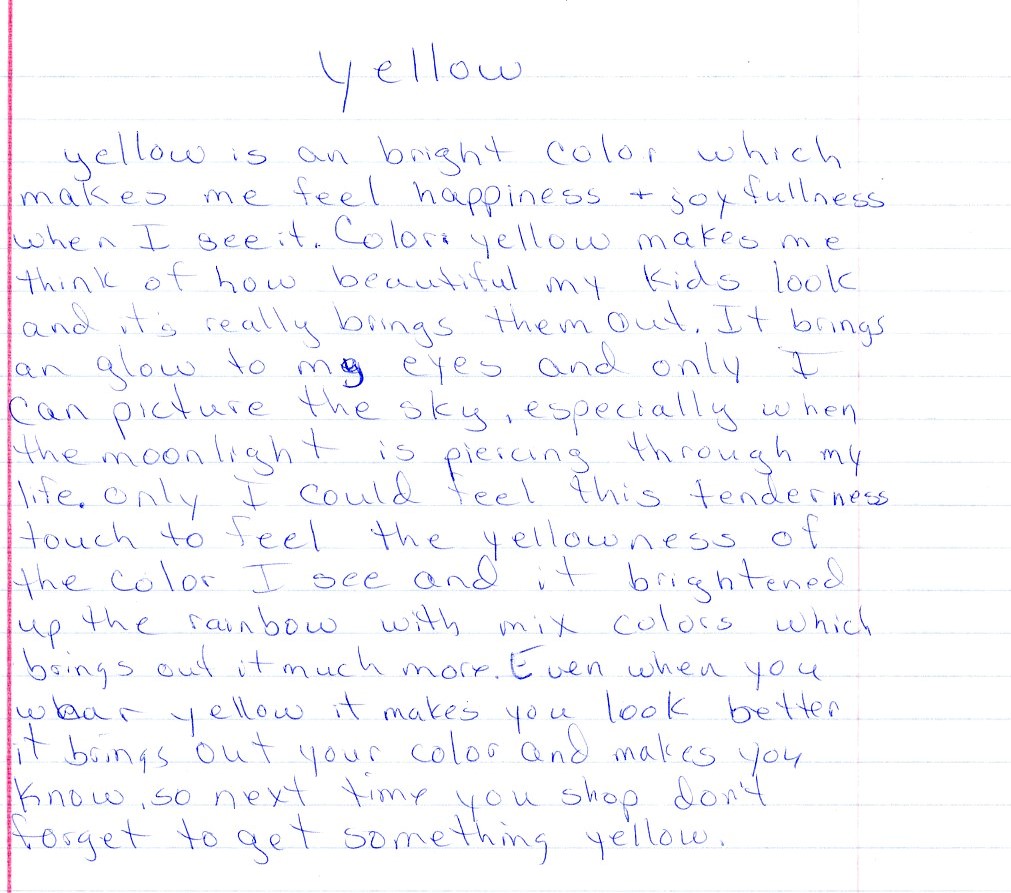 Yellow
yellow is an bright color which
makes me feel happiness + joyfullness
when I see it. Color yellow makes me
think of how beautiful my kids look
and it's really brings them out. It brings
an glow to my eyes and only I
can picture the sky, especially when
the moonlight is piercing through my
life. only I could feel this tenderness
touch to feel the yellowness of
the color I see and it brightened
up the rainbow with mix colors which
brings out it much more. Even when you
wear yellow it makes you look better
it brings out your color and makes you
know, so next time you shop don't
forget to get something yellow.